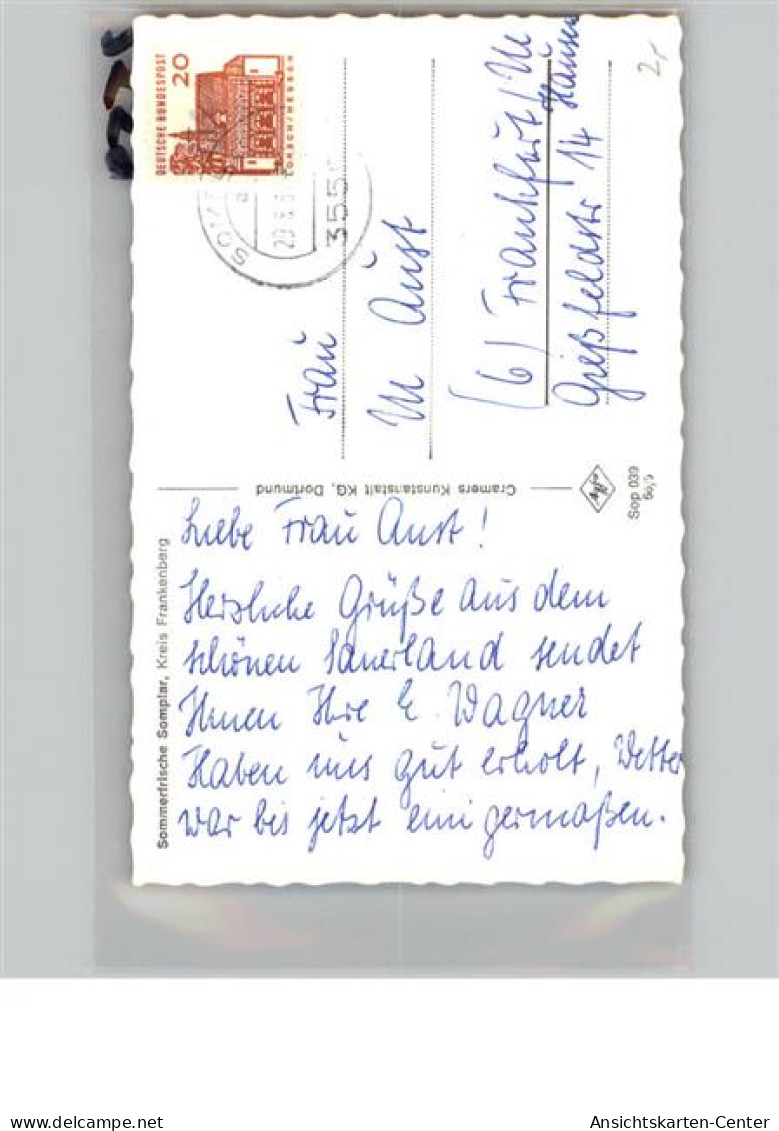 Sommerfrische Somplar, Kreis Frankenberg
Liebe Frau Aust!
Herzliche Grüße aus dem
schönen Sauerland sendet
Ihnen Ihre E. Wagner
Haben uns gut erholt, Wetter
war bis jetzt einigermaßen.
Cramers Kunstanstalt KG, Dortmund
Agfa
Sop 039
DEUTSCHE BUNDESPOST
20
LORSCH/HESSEN
355
Frau
M Aust
(6) Frankfurt/M
Hausen
Gießfeldstr 14
2,-
delcampe.net
Ansichtskarten-Center